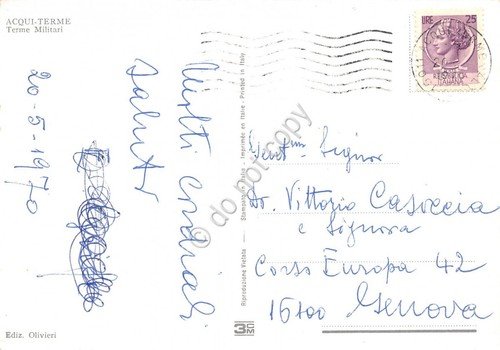 ACQUI-TERME
Terme Militari
20-5-1970
Molti cordiali
saluti
Ediz. Olivieri
Riproduzione Vietata
Stampato in Italia - Imprimée en Italie - Printed in Italy
3CM
LIRE 25
Gent.mi Signor
Dr. Vittorio Casoccia
e Signora
Corso Europa 42
16100 Genova
do not copy